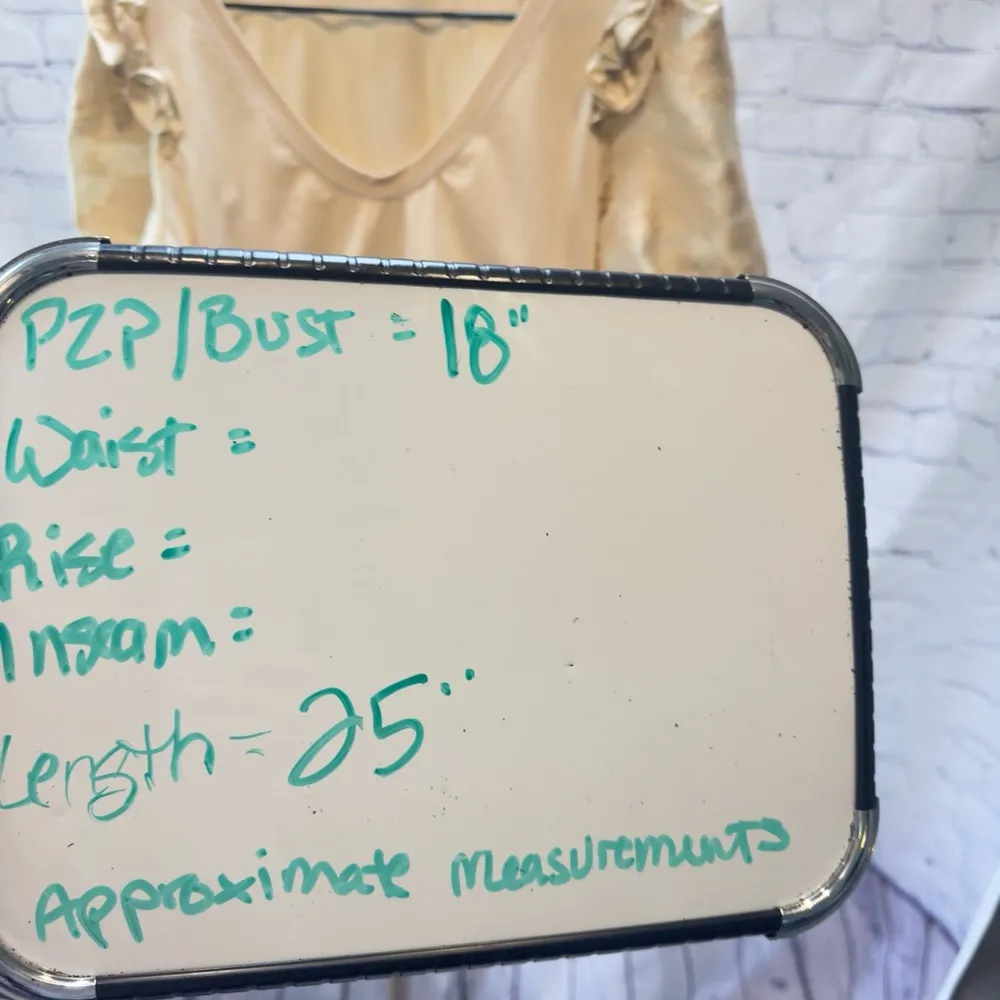 P2P/Bust = 18"
Waist =
Rise =
Inseam =
Length = 25"
Approximate Measurements